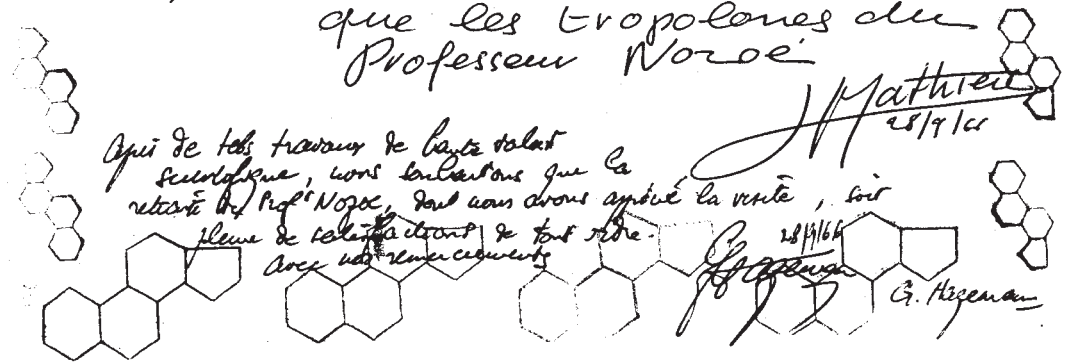 que les tropolones du
Professeur Nozoé
J Mathieu
28/9/66
Après de tels travaux de haute valeur
scientifique, nous souhaitons que la
retraite du Prof. Nozoe, dont nous avons apprécié la visite, soit
pleine de satisfactions de tout ordre.
avec nos remerciements
28/9/66
G. Hagemann